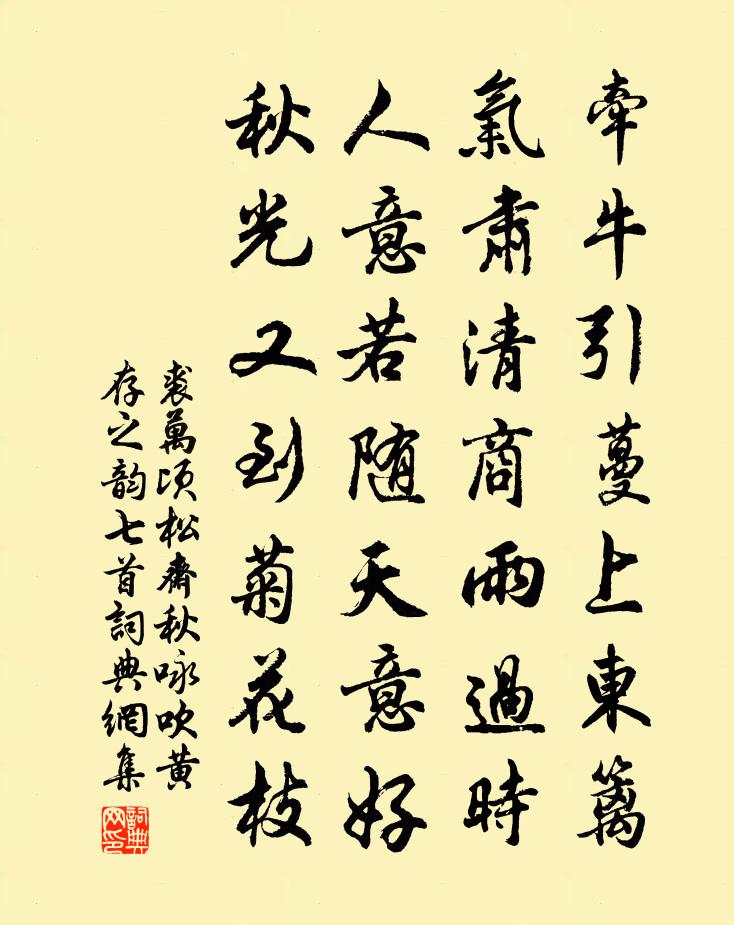 牽牛引蔓上東籬
氣肅清商雨過時
人意若隨天意好
秋光又到菊花枝
裘萬頃松齋秋咏吹黃
存之韵七首詞典網集
詞典網印